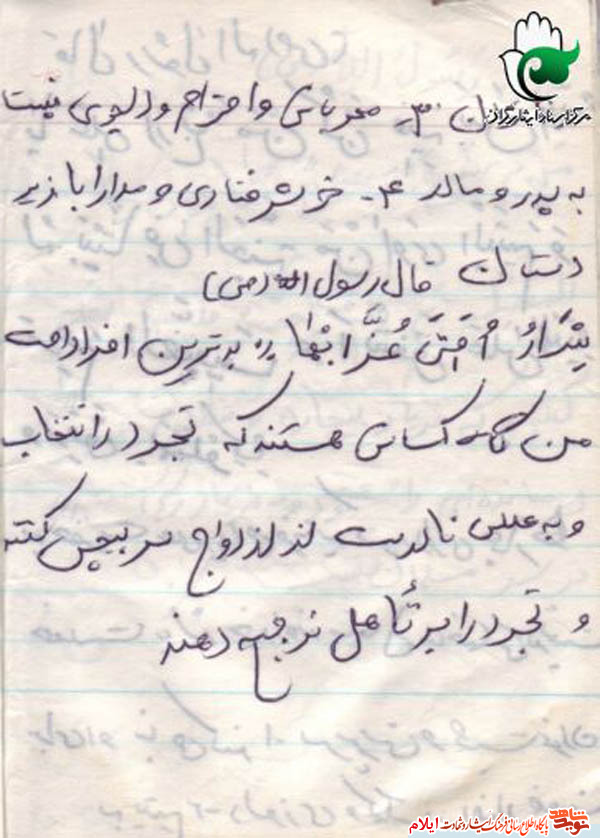 مرکز اسناد ایثارگران
ن ۳- مهربانی و احترام و دلسوزی نسبت
به پدر و مادر ۴- خوشرفتاری و مدارا با زیر
دستان قال رسول الله (ص)
شِرَارُ اُمَّتی عُزَّابُها بدترین افراد امت
من کسانی هستند که تجرد را انتخاب
و به عللی نادرست از ازدواج سرپیچی کنند
و تجرد را بر تأهل ترجیح دهند
نوید شاهد پایگاه اطلاع رسانی فرهنگ ایثار و شهادت ایلام